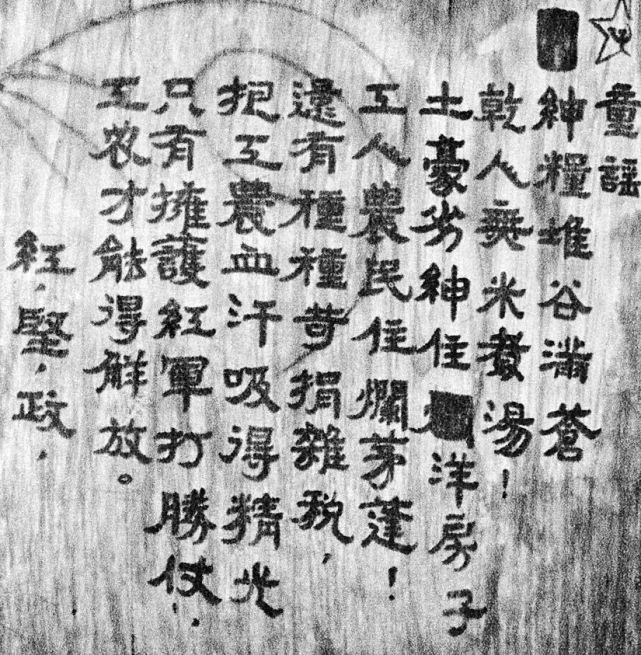 童謡
紳糧堆谷滿蒼
乾人無米煮湯！
土豪劣紳住洋房子
工人農民住爛茅蓬！
還有種種苛捐雜稅，
把工農血汗吸得精光
只有擁護紅軍打勝仗，
工农才能得解放。
紅，堅，政，